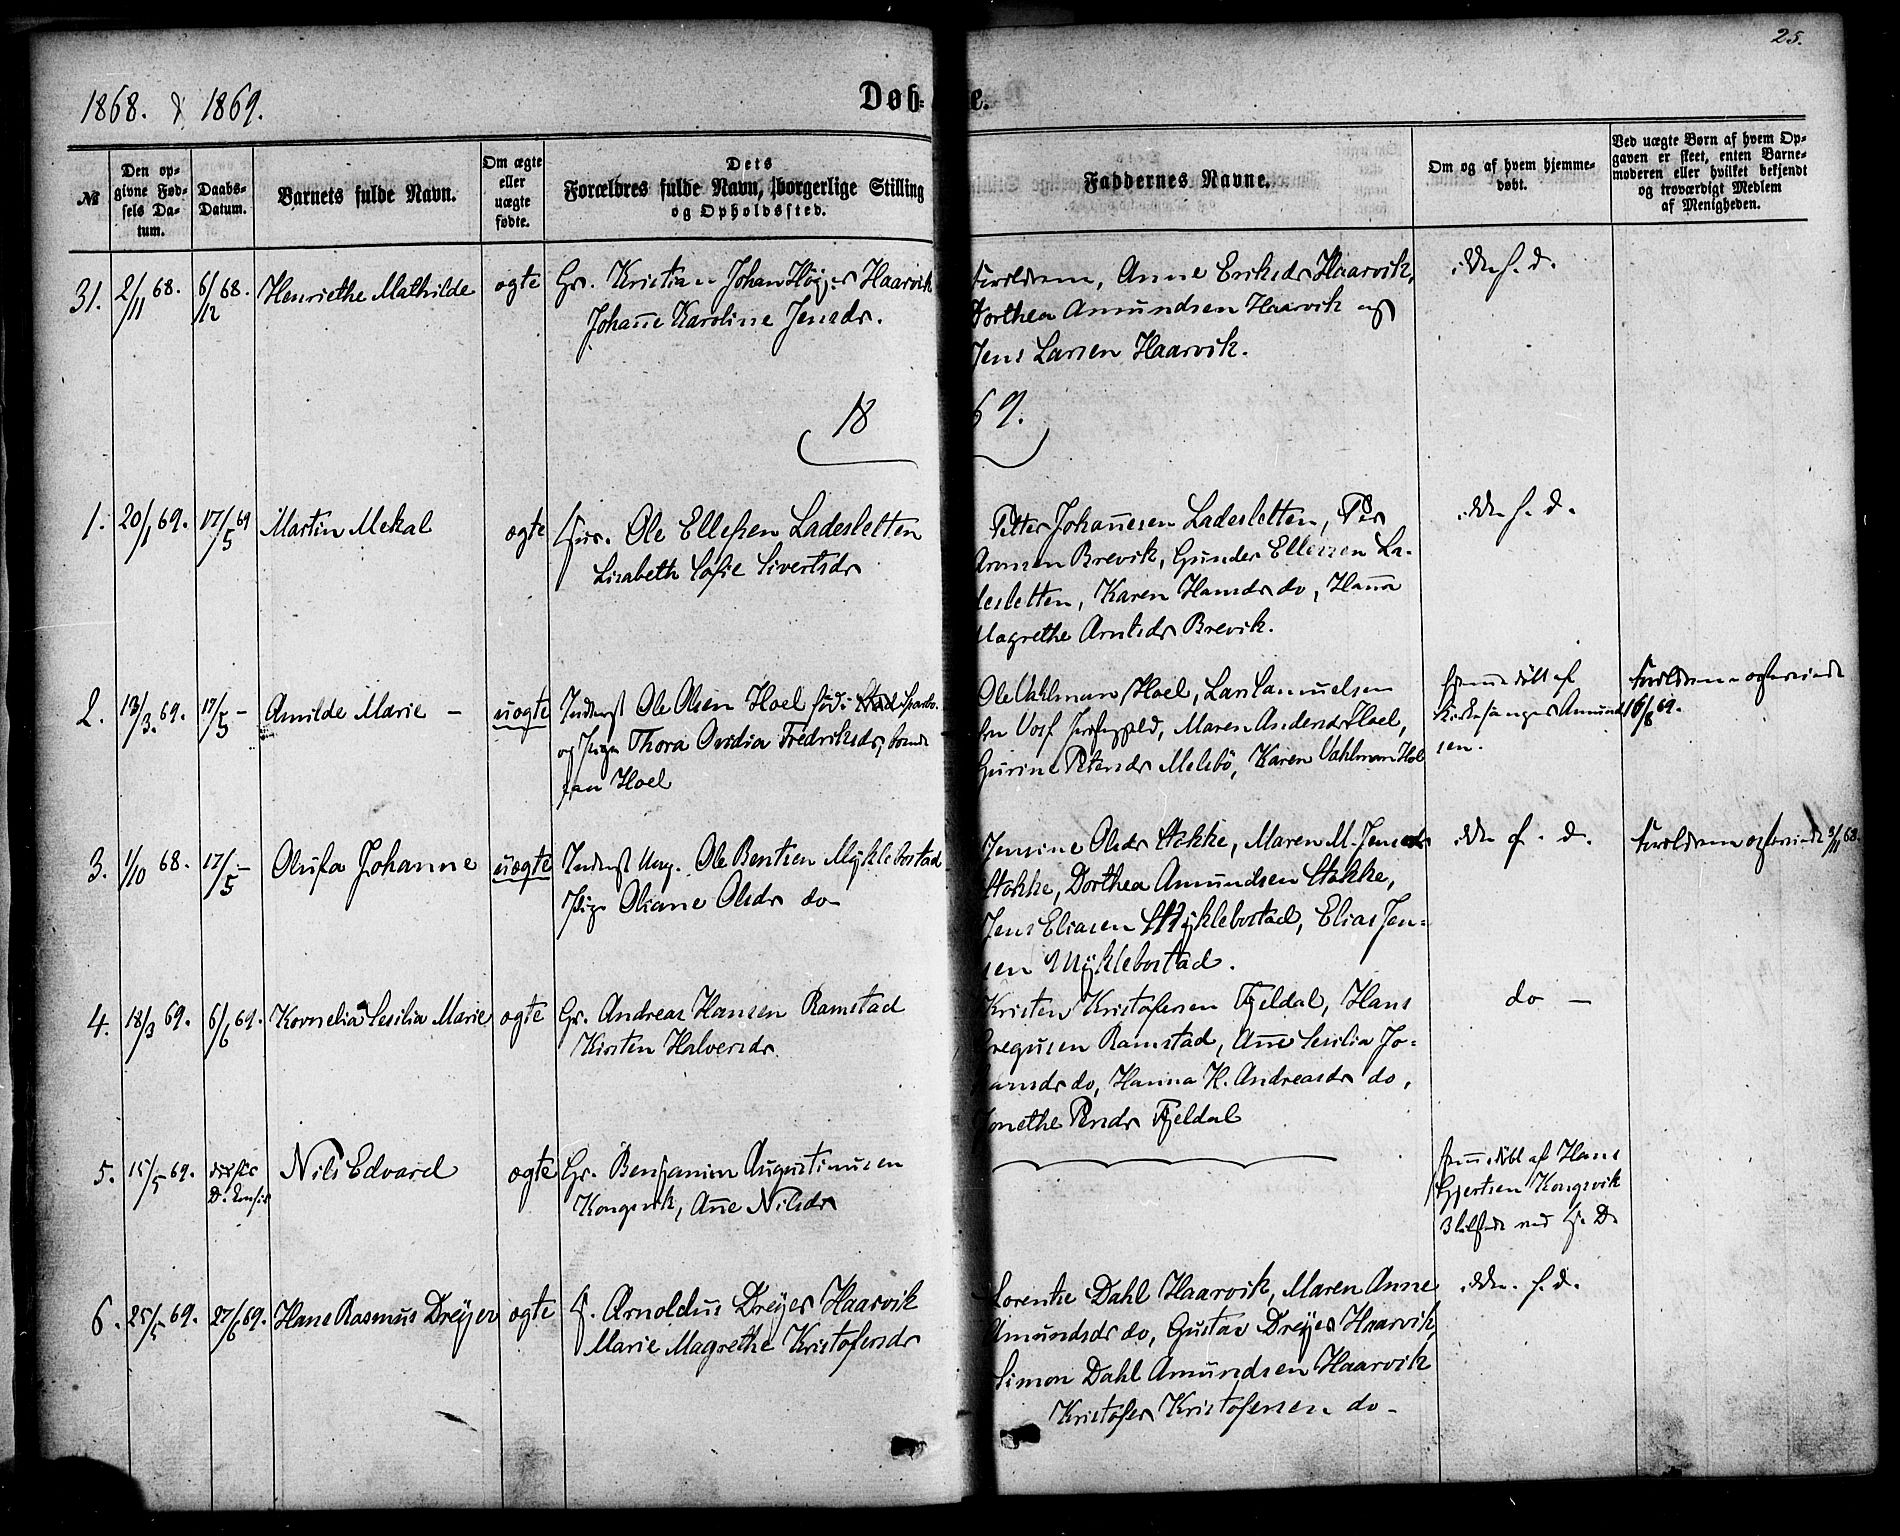 25.
1868. & 1869.
Døb- e.
№
Den op-
givne Fød-
sels Da-
tum.
Daabs-
Datum.
Barnets fulde Navn.
Om ægte
eller
uægte
fødte.
Dets
Forældres fulde Navn, borgerlige Stilling
og Opholdssted.
Faddernes Navne.
Om og af hvem hjemme-
døbt.
Ved uægte Børn af hvem Op-
gaven er skeet, enten Barne-
moderen eller hvilket bekjendt
og troværdigt Medlem
af Menigheden.
31. 2/11 68. 6/12 68. Henriethe Mathilde ægte Gr. Kristian Johan Höyer Haarvik
Johanne Karoline Jensdr.
Forældrene, Anne Eriksdr Haarvik,
Dorthea Amundsen Haarvik og
Jens Larsen Haarvik.
1869.
1. 20/1 69. 17/5 69 Martin Mekal ægte Ole Ellefsen Ladesletten
Lisabeth Sofie Sivertsdr
Petter Johannesen Ladesletten, Per
Aronsen Brevik, Gunder Ellefsen La-
desletten, Karen Hansdr do, Hanna
Magrethe Arntsdr Brevik.
2. 13/3 69. 17/5 - Amilde Marie - uægte Inderst Ole Olsen Hoel
og Pige Thora Ovidia Fredriksdr,
Hoel
Ole Vahlman Hoel, Lars Samuelsen
Maren Andersdr Hoel,
Gurine Petersdr Melsbö, Karen Vahlman Hoel
Hjemmedöbt af
Kirkesanger Amund-
sen.
Forældrene
16/8 69.
3. 1/10 68. 17/5 - Olufa Johanne uægte Inderst Ung. Ole Bentsen Myklebostad
Pige Oliane Olsdr do -
Jensine Olsdr Stokke, Maren M. Jensdr
Stokke, Dorthea Amundsen Stokke,
Jens Eliasen Myklebostad, Elias Jen-
sen Myklebostad.
Forældrene
4. 18/3 69. 6/6 69. Kornelia Sesilia Marie ægte Gr. Andreas Hansen Ramstad
Kirsten Halversdr
Kristen Kristofersen Fjeldal, Hans
Gregusen Ramstad, Anne Sesilia Jo-
hansdr do, Hanna K. Andreasdr do,
Jonethe Persdr Fjeldal
do -
5. 15/5 69. Nils Edvard ægte Gr. Benjamin Augustinusen
Kongsvik, Anne Nilsdr
Hjemmedöbt af Hans
Gjertsen Kongsvik
6. 25/5 69. 27/6 69. Hans Rasmus Dreyer ægte Arnoldus Dreyer Haarvik
Marie Magrethe Kristofersdr
Lorentse Dahl Haarvik, Maren Anne
Amundsdr do, Gustav Dreyer Haarvik,
Simon Dahl Amundsen Haarvik
Kristofer Kristofersen do -